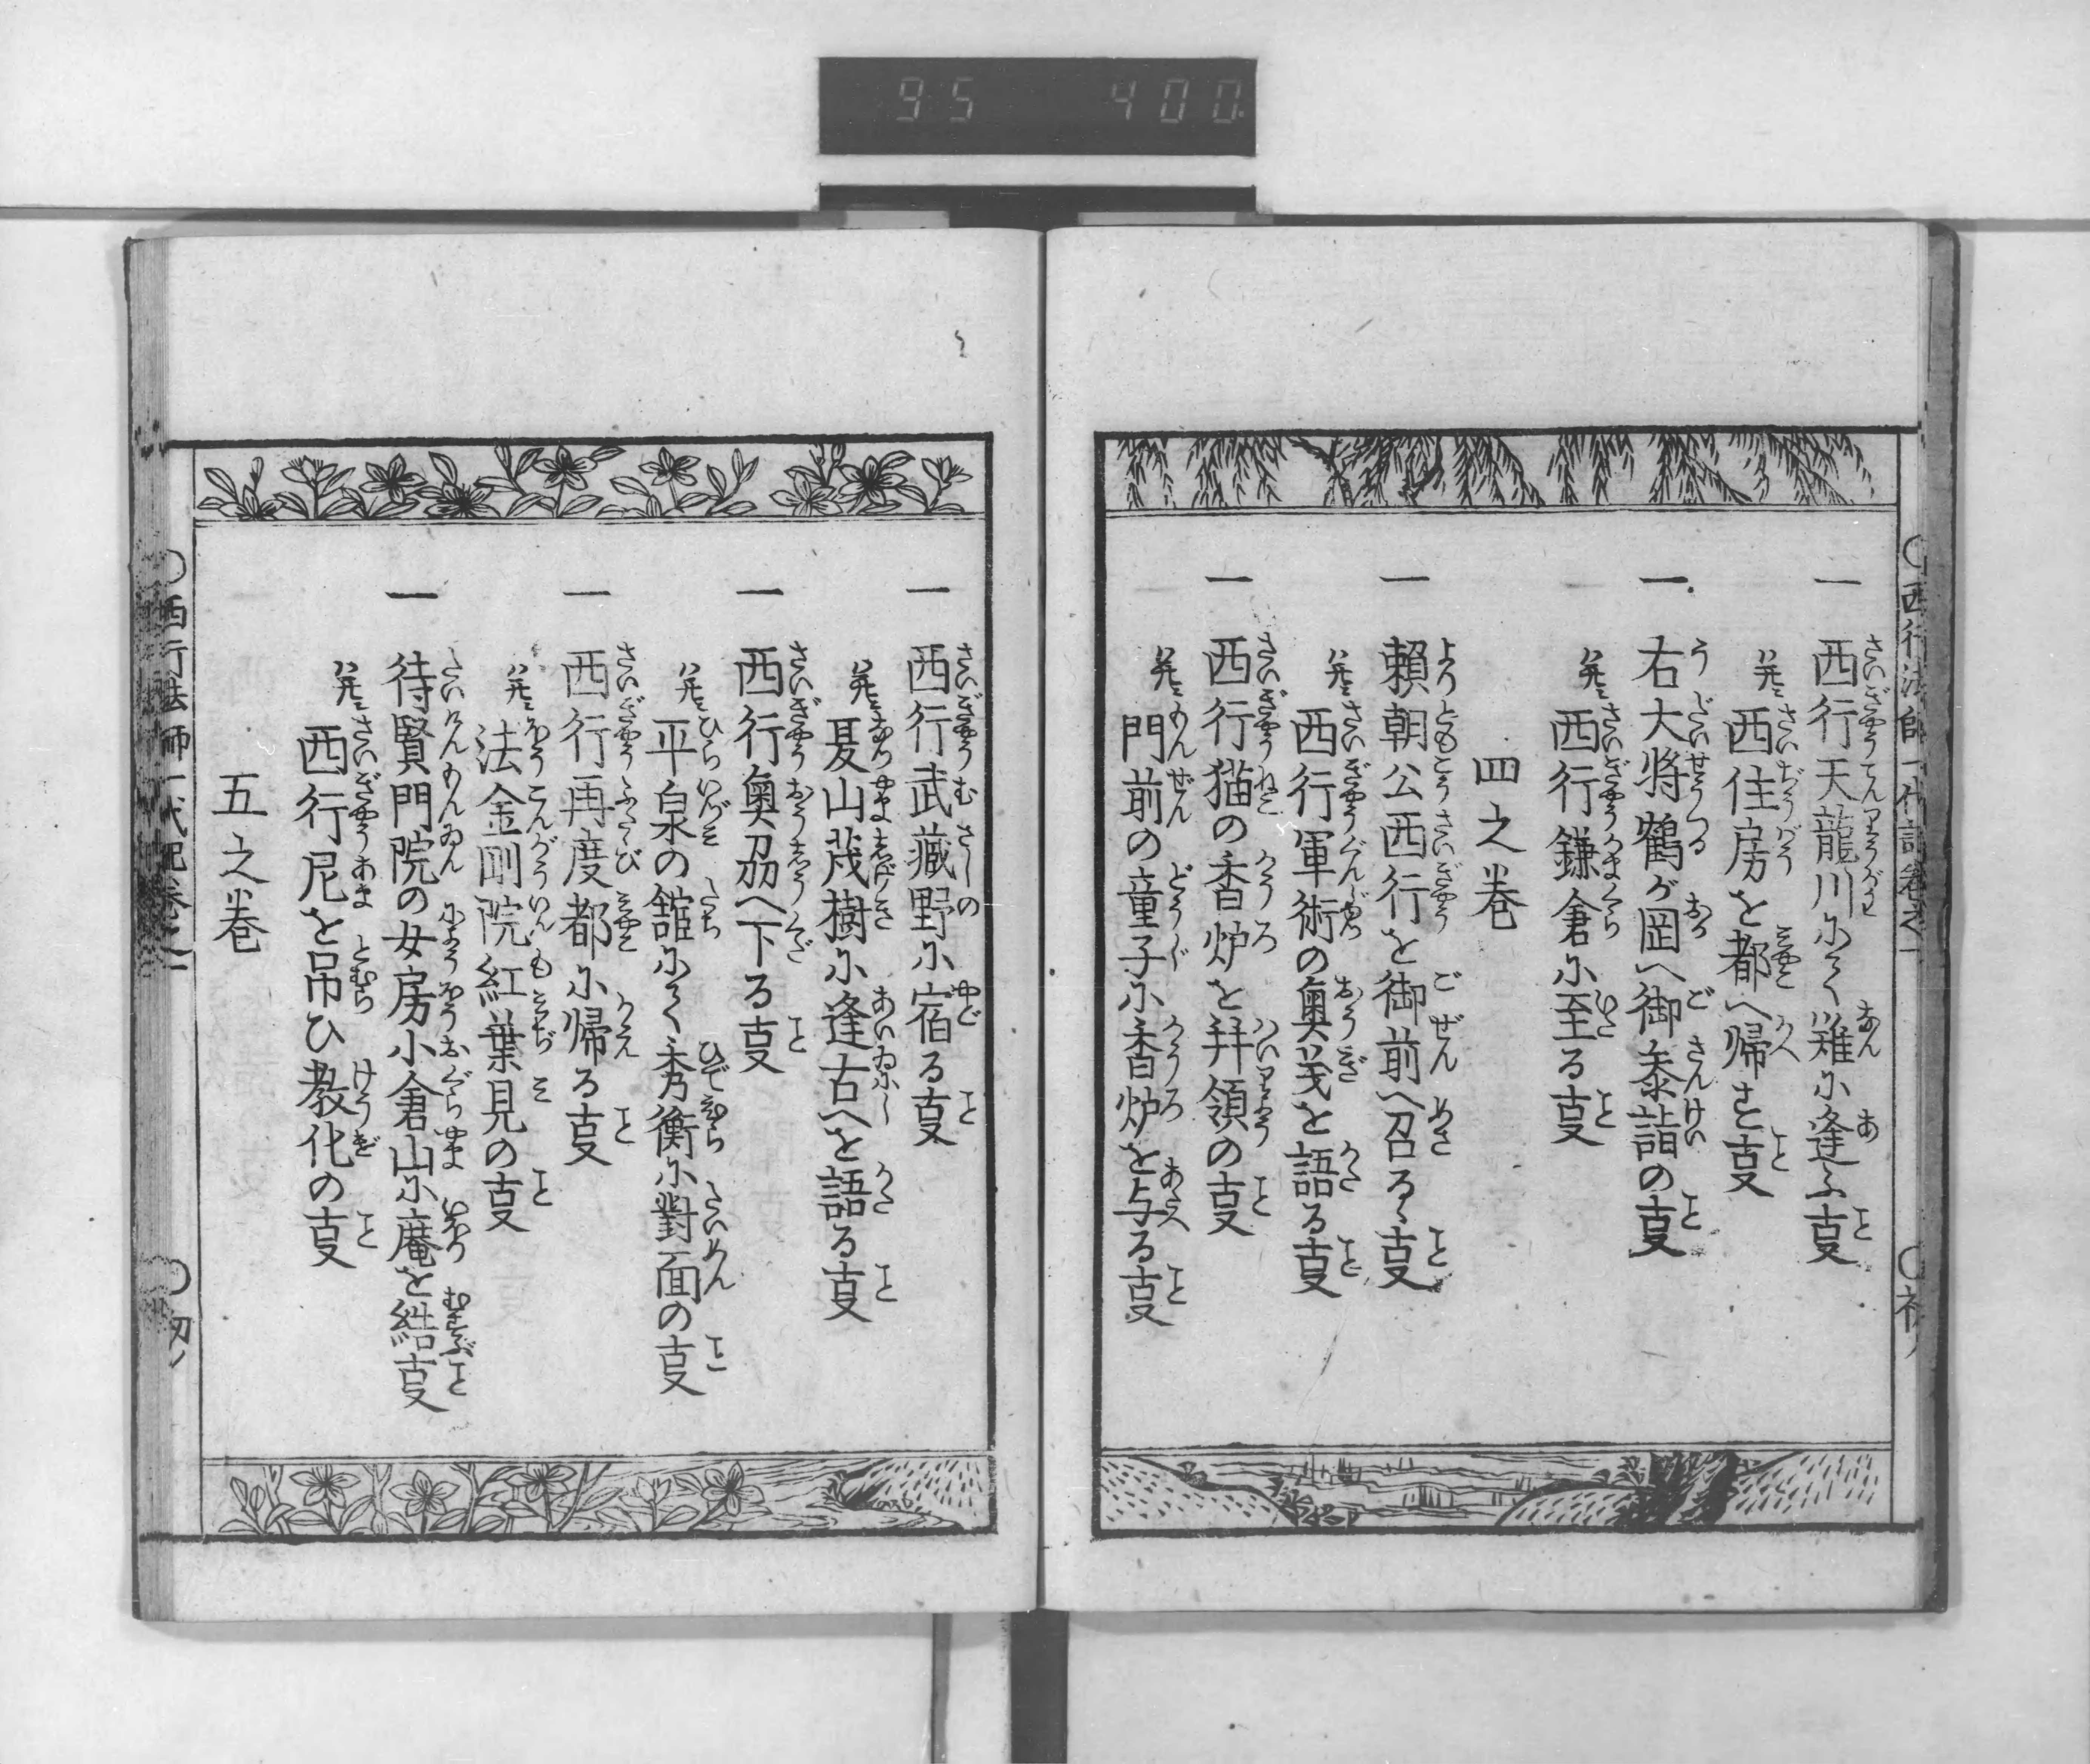 95 400
西行法師一代記巻之一
一 西行天龍川にて難に逢ふ叓
并ニ 西住房を都へ帰す叓
一 右大将鶴が岡へ御参詣の叓
并ニ 西行鎌倉に至る叓
四之巻
一 頼朝公西行を御前へ召るゝ叓
并ニ 西行軍術の奥義を語る叓
一 西行猫の香炉を拝領の叓
并ニ 門前の童子に香炉を与る叓
一 西行武蔵野に宿る叓
并ニ 夏山茂樹に逢古へを語る叓
一 西行奥刕へ下る叓
并ニ 平泉の舘にて秀衡に對面の叓
一 西行再度都に帰る叓
并ニ 法金剛院紅葉見の叓
一 待賢門院の女房小倉山に庵を結叓
并ニ 西行尼を吊ひ教化の叓
五之巻
西行法師一代記巻之一
初ノ